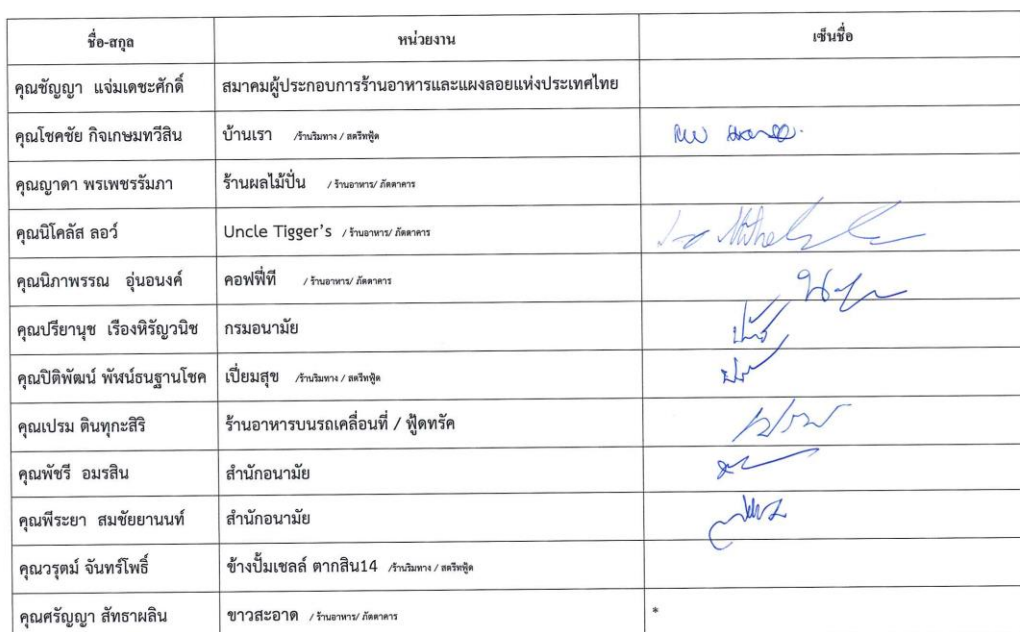 ชื่อ-สกุล หน่วยงาน เซ็นชื่อ
คุณชัญญา แจ่มเดชะศักดิ์ สมาคมผู้ประกอบการร้านอาหารและแผงลอยแห่งประเทศไทย
คุณโชคชัย กิจเกษมทวีสิน บ้านเรา /ร้านริมทาง / สตรีทฟู้ด
คุณญาดา พรเพชรรัมภา ร้านผลไม้ปั่น / ร้านอาหาร/ ภัตตาคาร
คุณนิโคลัส ลอว์ Uncle Tigger's / ร้านอาหาร/ ภัตตาคาร
คุณนิภาพรรณ อุ่นอนงค์ คอฟฟี่ที / ร้านอาหาร/ ภัตตาคาร
คุณปรียานุช เรืองหิรัญวนิช กรมอนามัย
คุณปิติพัฒน์ พัฬน์ธนฐานโชค เปี่ยมสุข /ร้านริมทาง / สตรีทฟู้ด
คุณเปรม ตินทุกะสิริ ร้านอาหารบนรถเคลื่อนที่ / ฟู้ดทรัค
คุณพัชรี อมรสิน สำนักอนามัย
คุณพีระยา สมชัยยานนท์ สำนักอนามัย
คุณวรุตม์ จันทร์โพธิ์ ข้างปั้มเชลล์ ตากสิน14 /ร้านริมทาง / สตรีทฟู้ด
คุณศรัญญา สัทธาผลิน ขาวสะอาด / ร้านอาหาร/ ภัตตาคาร *